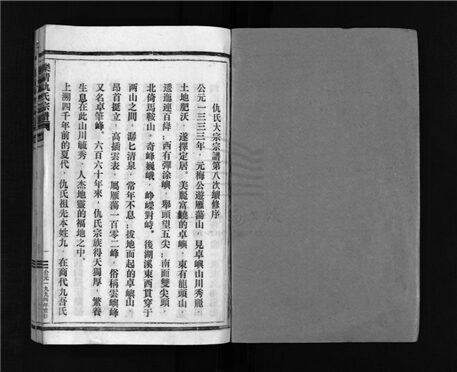 仇氏大宗宗譜第八次續修序
公元一三三三年，元梅公遊雁蕩山，見卓嶼山川秀麗，
土地肥沃，遂擇定居。美麗富饒的卓嶼，東有龍頭山，
逶迤連百峰；西有彈涂嶼，舉頭望五尖；南面雙尖頭，
北倚馬鞍山，奇峰巍峨，崢嶸對峙。後湖溪東西貫穿于
兩山之間，漏匕清泉，常年不息；拔地而起的卓嶼山，
昂首挺立，高插雲表，屬雁蕩一百零二峰，俗稱雲嶼峰
又名卓筆峰。六百六十年來，仇氏宗族得天獨厚，繁養
生息在此山川毓秀，人杰地靈的福地之中。
上溯四千年前的夏代，仇氏祖先本姓九，在商代九吾氏
樂清仇氏宗譜
一
公元一九九四年